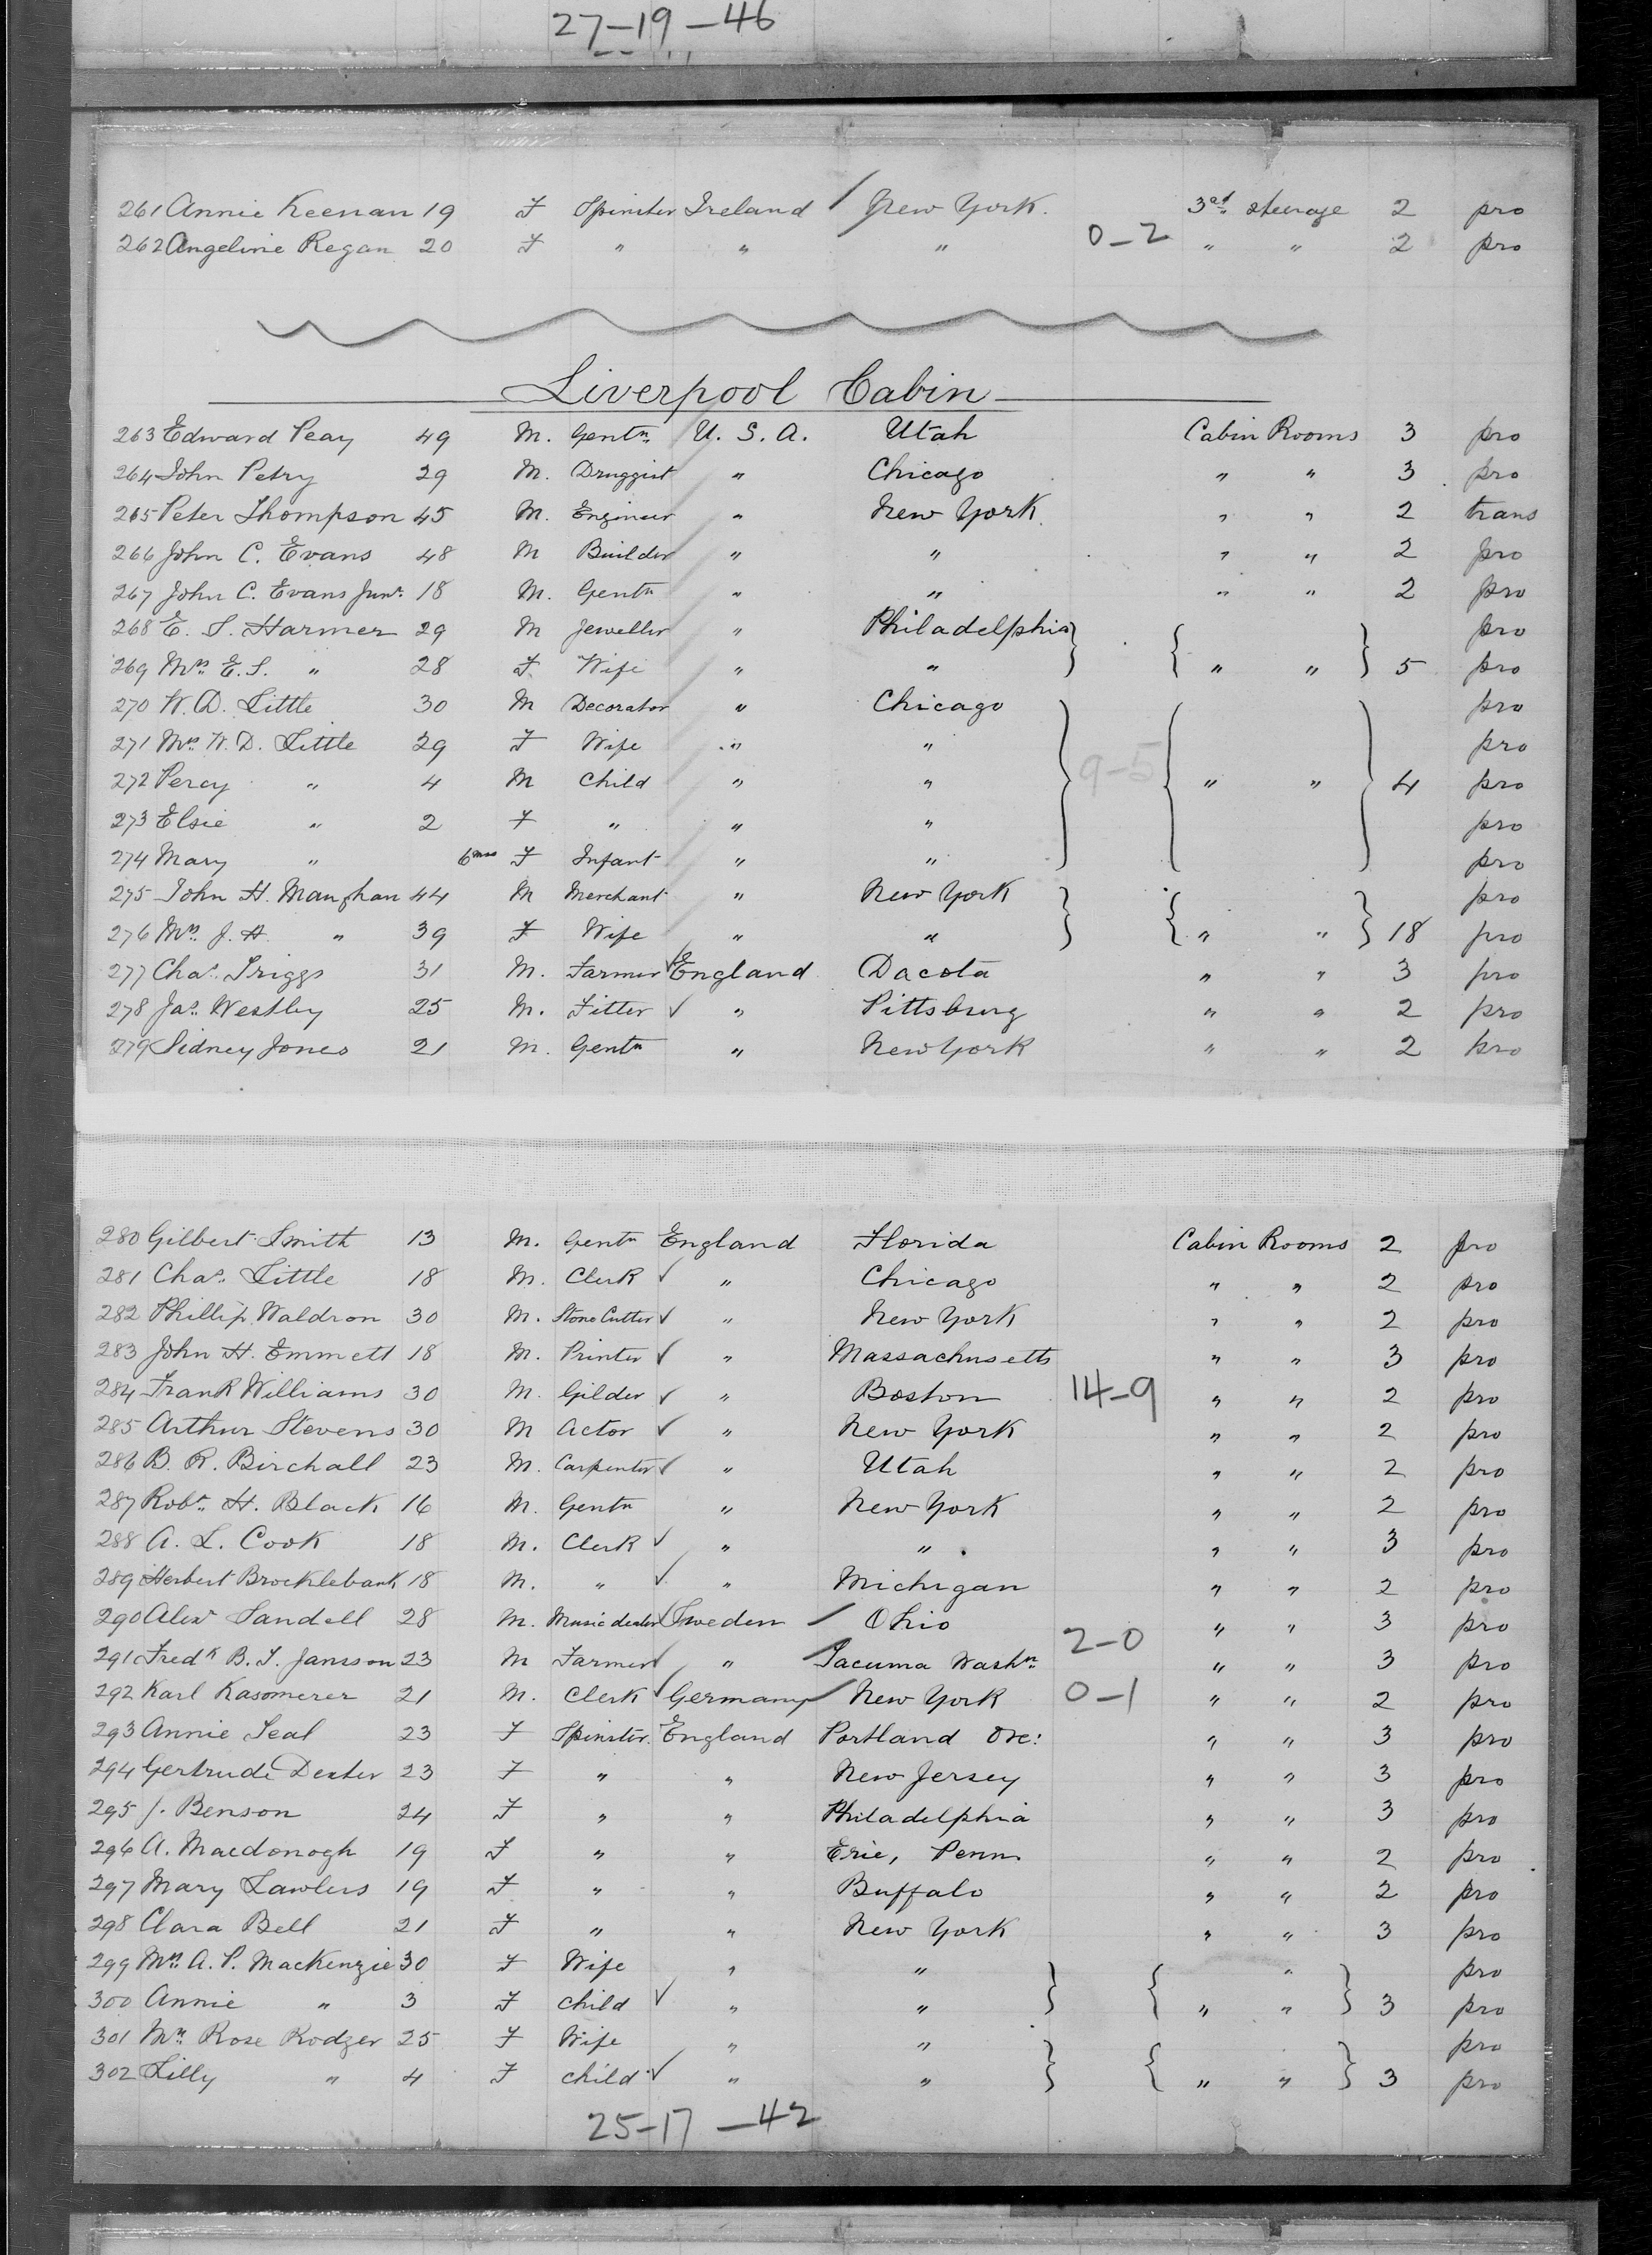 27-19-46
261 Annie Keenan 19 F Spinster Ireland / New York. 3rd steerage 2 pro
262 Angeline Regan 20 F " " " 0-2 " " 2 pro
Liverpool Cabin
263 Edward Peay 49 M. Gentn U.S.A. Utah Cabin Rooms 3 pro
264 John Petry 29 M. Druggist " Chicago " " 3 pro
265 Peter Thompson 45 M. Engineer " New York " " 2 trans
266 John C. Evans 48 M Builder " " " " 2 pro
267 John C. Evans Junr. 18 M. Gentn " " " " 2 pro
268 E. S. Harmer 29 M Jeweller " Philadelphia pro
269 Mrs E. S. " 28 F. Wife " " " " 5 pro
270 W. D. Little 30 M Decorator " Chicago pro
271 Mrs W. D. Little 29 F Wife " " pro
272 Percy " 4 M Child " " 9-5 " " 4 pro
273 Elsie " 2 F " " " pro
274 Mary " 6 mos F Infant " " pro
275 John H. Maughan 44 M Merchant " New York pro
276 Mrs J. H. " 39 F Wife " " " " 18 pro
277 Chas. Triggs 31 M. Farmer ✓ England Dacota " " 3 pro
278 Jas. Westby 25 M. Fitter ✓ " Pittsburg " " 2 pro
279 Sidney Jones 21 M. Gentn " New York " " 2 pro
280 Gilbert Smith 13 M. Gentn England Florida Cabin Rooms 2 pro
281 Chas. Little 18 M. Clerk ✓ " Chicago " " 2 pro
282 Phillip Waldron 30 M. Stone Cutter ✓ " New York " " 2 pro
283 John H. Emmett 18 M. Printer ✓ " Massachusetts " " 3 pro
284 Frank Williams 30 M. Gilder ✓ " Boston 14-9 " " 2 pro
285 Arthur Stevens 30 M Actor ✓ " New York " " 2 pro
286 B. R. Birchall 23 M. Carpenter ✓ " Utah " " 2 pro
287 Robt. H. Black 16 M. Gentn " New York " " 2 pro
288 A. L. Cook 18 M. Clerk ✓ " " " " 3 pro
289 Herbert Brocklebank 18 M. " ✓ " Michigan " " 2 pro
290 Alexr Sandell 28 M. Music dealer ✓ Sweden / Ohio 2-0 " " 3 pro
291 Fredk B. T. Jansson 23 M Farmer ✓ " / Tacuma Washn. " " 3 pro
292 Karl Kasomerer 21 M. Clerk ✓ Germany / New York 0-1 " " 2 pro
293 Annie Seal 23 F Spinster. England Portland Ore: " " 3 pro
294 Gertrude Dexter 23 F " " New Jersey " " 3 pro
295 J. Benson 24 F " " Philadelphia " " 3 pro
296 A. Macdonogh 19 F " " Erie, Penn. " " 2 pro
297 Mary Lawlers 19 F " " Buffalo " " 2 pro
298 Clara Bell 21 F " " New York " " 3 pro
299 Mrs A. P. MacKenzie 30 F Wife " " " pro
300 Annie " 3 F child ✓ " " " " 3 pro
301 Mrs Rose Rodger 25 F Wife " " pro
302 Lilly " 4 F child ✓ " " " " 3 pro
25-17-42